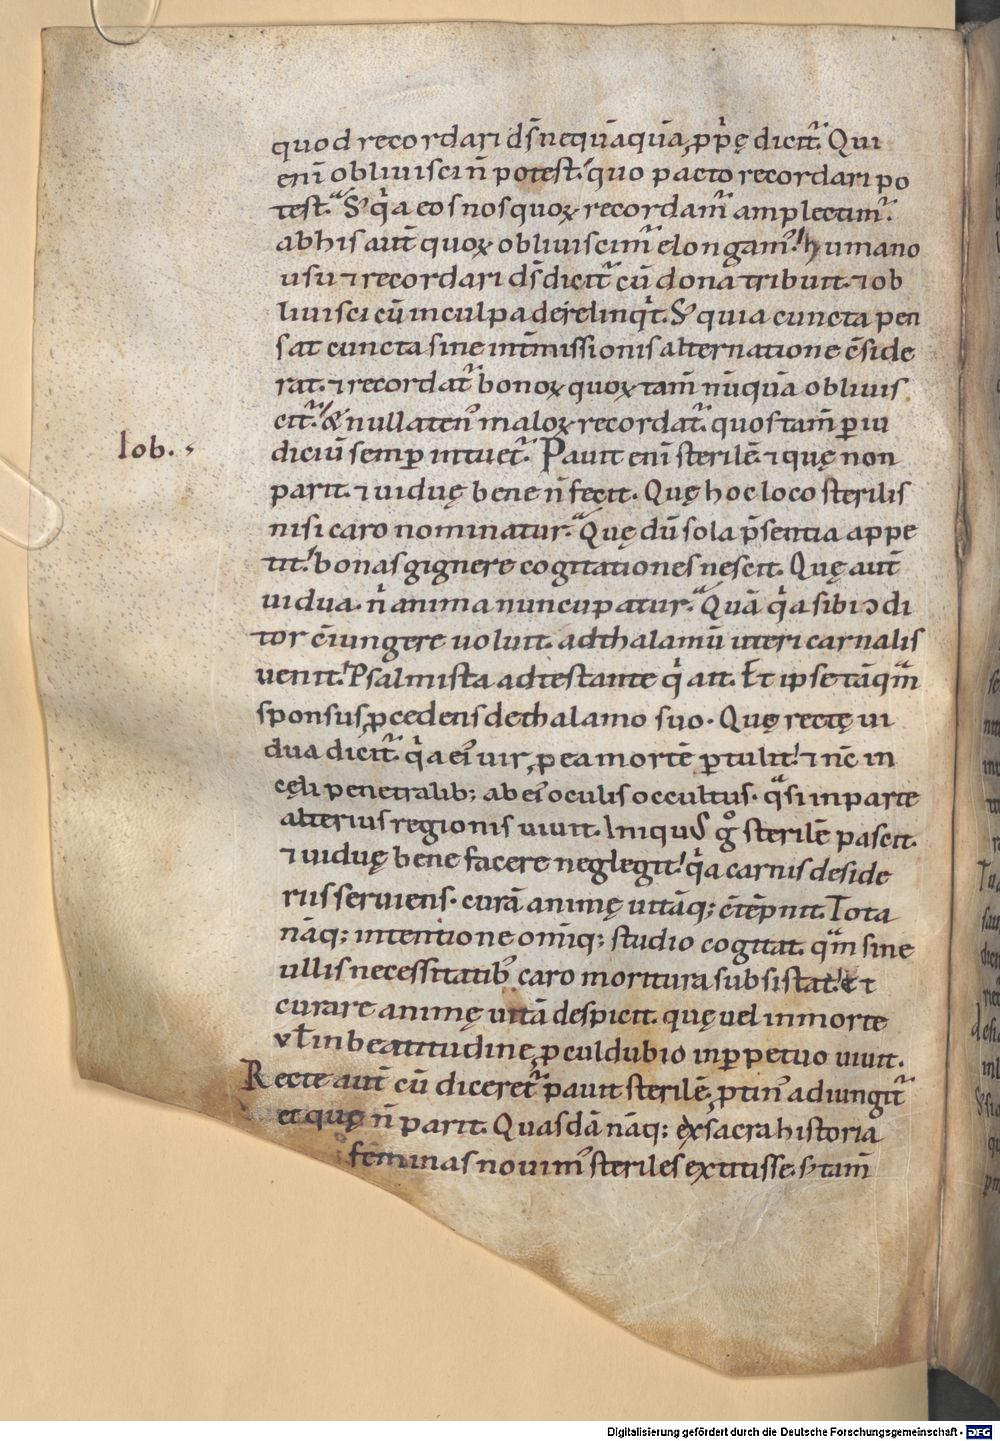 quod recordari ds̄ nequāquā, p̱pⁱę dicit᷑. Qui
enī obliuisci n̄ potest. quo pacto recordari po
test. S; qⁱa eos nos quoꝝ recordam᷑ amplectim᷑.
ab his aut̄ quoꝝ obliuiscim᷑ elongam᷒. humano
usu ⁊ recordari ds̄ dicit᷑ cū dona tribuit. ⁊ ob
liuisci cū in culpa derelinqⁱt. S; quia cuncta pen
sat cuncta sine int̄missionis alternatione c̄side
rat. ⁊ recordat᷑ bonoꝝ quoꝝ tam̄ nūquā obliuis
cit᷑. & nullaten᷒ maloꝝ recordat᷑. quos tam̄ ꝑ iu
Iob.
diciū semꝑ intuet᷑. Pauit enī sterilē. ⁊ quę non
parit. ⁊ uiduę bene n̄ fecit. Quę hoc loco sterilis
nisi caro nominatur. Quę dū sola p̄sentia appe
tit. bonas gignere cogitationes nescit. Quę aut̄
uidua. n̄ anima nuncupatur. Quā qⁱa sibi ↄdi
tor c̄iungere uoluit. ad thalamū uteri carnalis
uenit. Psalmista adtestante qⁱ ait. Et ipse tāqᵃm
sponsus ꝓcedens de thalamo suo. Quę rectę ui
dua dicit᷑. qⁱa ei᷒ uir, ꝓ ea mortē ꝑtulit. ⁊ nc̄ in
cęli penetralib; ab ei᷒ oculis occultus. qᵃsi in parte
alterius regionis uiuit. Iniqus gͦ sterilē pascit.
⁊ uiduę bene facere neglegit. qⁱa carnis deside
riis seruiens. curā animę uitāq; c̄tēpnit. Tota
nāq; intentione om̄iq; studio cogitat. qᵃm sine
ullis necessitatib᷒ caro moritura subsistat. et
curare animę uitā despicit. quę uel in morte
vl̄ in beatitudine, ꝓculdubio in ꝑpetuo uiuit.
Recte aut̄ cū diceret᷑ pauit sterilē. ꝓtin᷒ adiungit᷑
et quę n̄ parit. Quasdā nāq; ex sacra historia
feminas nouim᷒ steriles extitisse. s; tam̄
Digitalisierung gefördert durch die Deutsche Forschungsgemeinschaft - DFG